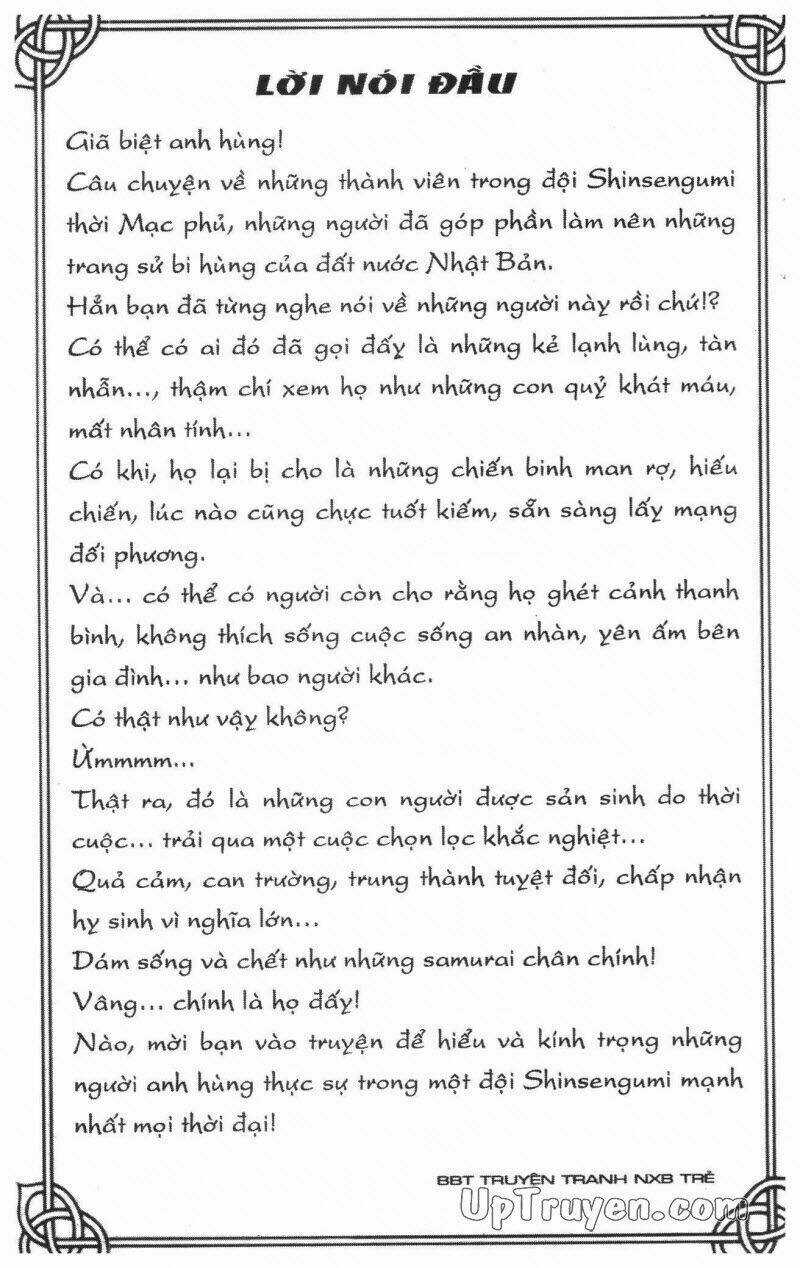 LỜI NÓI ĐẦU
Giã biệt anh hùng!
Câu chuyện về những thành viên trong đội Shinsengumi
thời Mạc phủ, những người đã góp phần làm nên những
trang sử bi hùng của đất nước Nhật Bản.
Hẳn bạn đã từng nghe nói về những người này rồi chứ!?
Có thể có ai đó đã gọi đấy là những kẻ lạnh lùng, tàn
nhẫn..., thậm chí xem họ như những con quỷ khát máu,
mất nhân tính...
Có khi, họ lại bị cho là những chiến binh man rợ, hiếu
chiến, lúc nào cũng chực tuốt kiếm, sẵn sàng lấy mạng
đối phương.
Và... có thể có người còn cho rằng họ ghét cảnh thanh
bình, không thích sống cuộc sống an nhàn, yên ấm bên
gia đình... như bao người khác.
Có thật như vậy không?
Ừmmmm...
Thật ra, đó là những con người được sản sinh do thời
cuộc... trải qua một cuộc chọn lọc khắc nghiệt...
Quả cảm, can trường, trung thành tuyệt đối, chấp nhận
hy sinh vì nghĩa lớn...
Dám sống và chết như những samurai chân chính!
Vâng... chính là họ đấy!
Nào, mời bạn vào truyện để hiểu và kính trọng những
người anh hùng thực sự trong một đội Shinsengumi mạnh
nhất mọi thời đại!
BBT TRUYỆN TRANH NXB TRẺ
UpTruyen.com